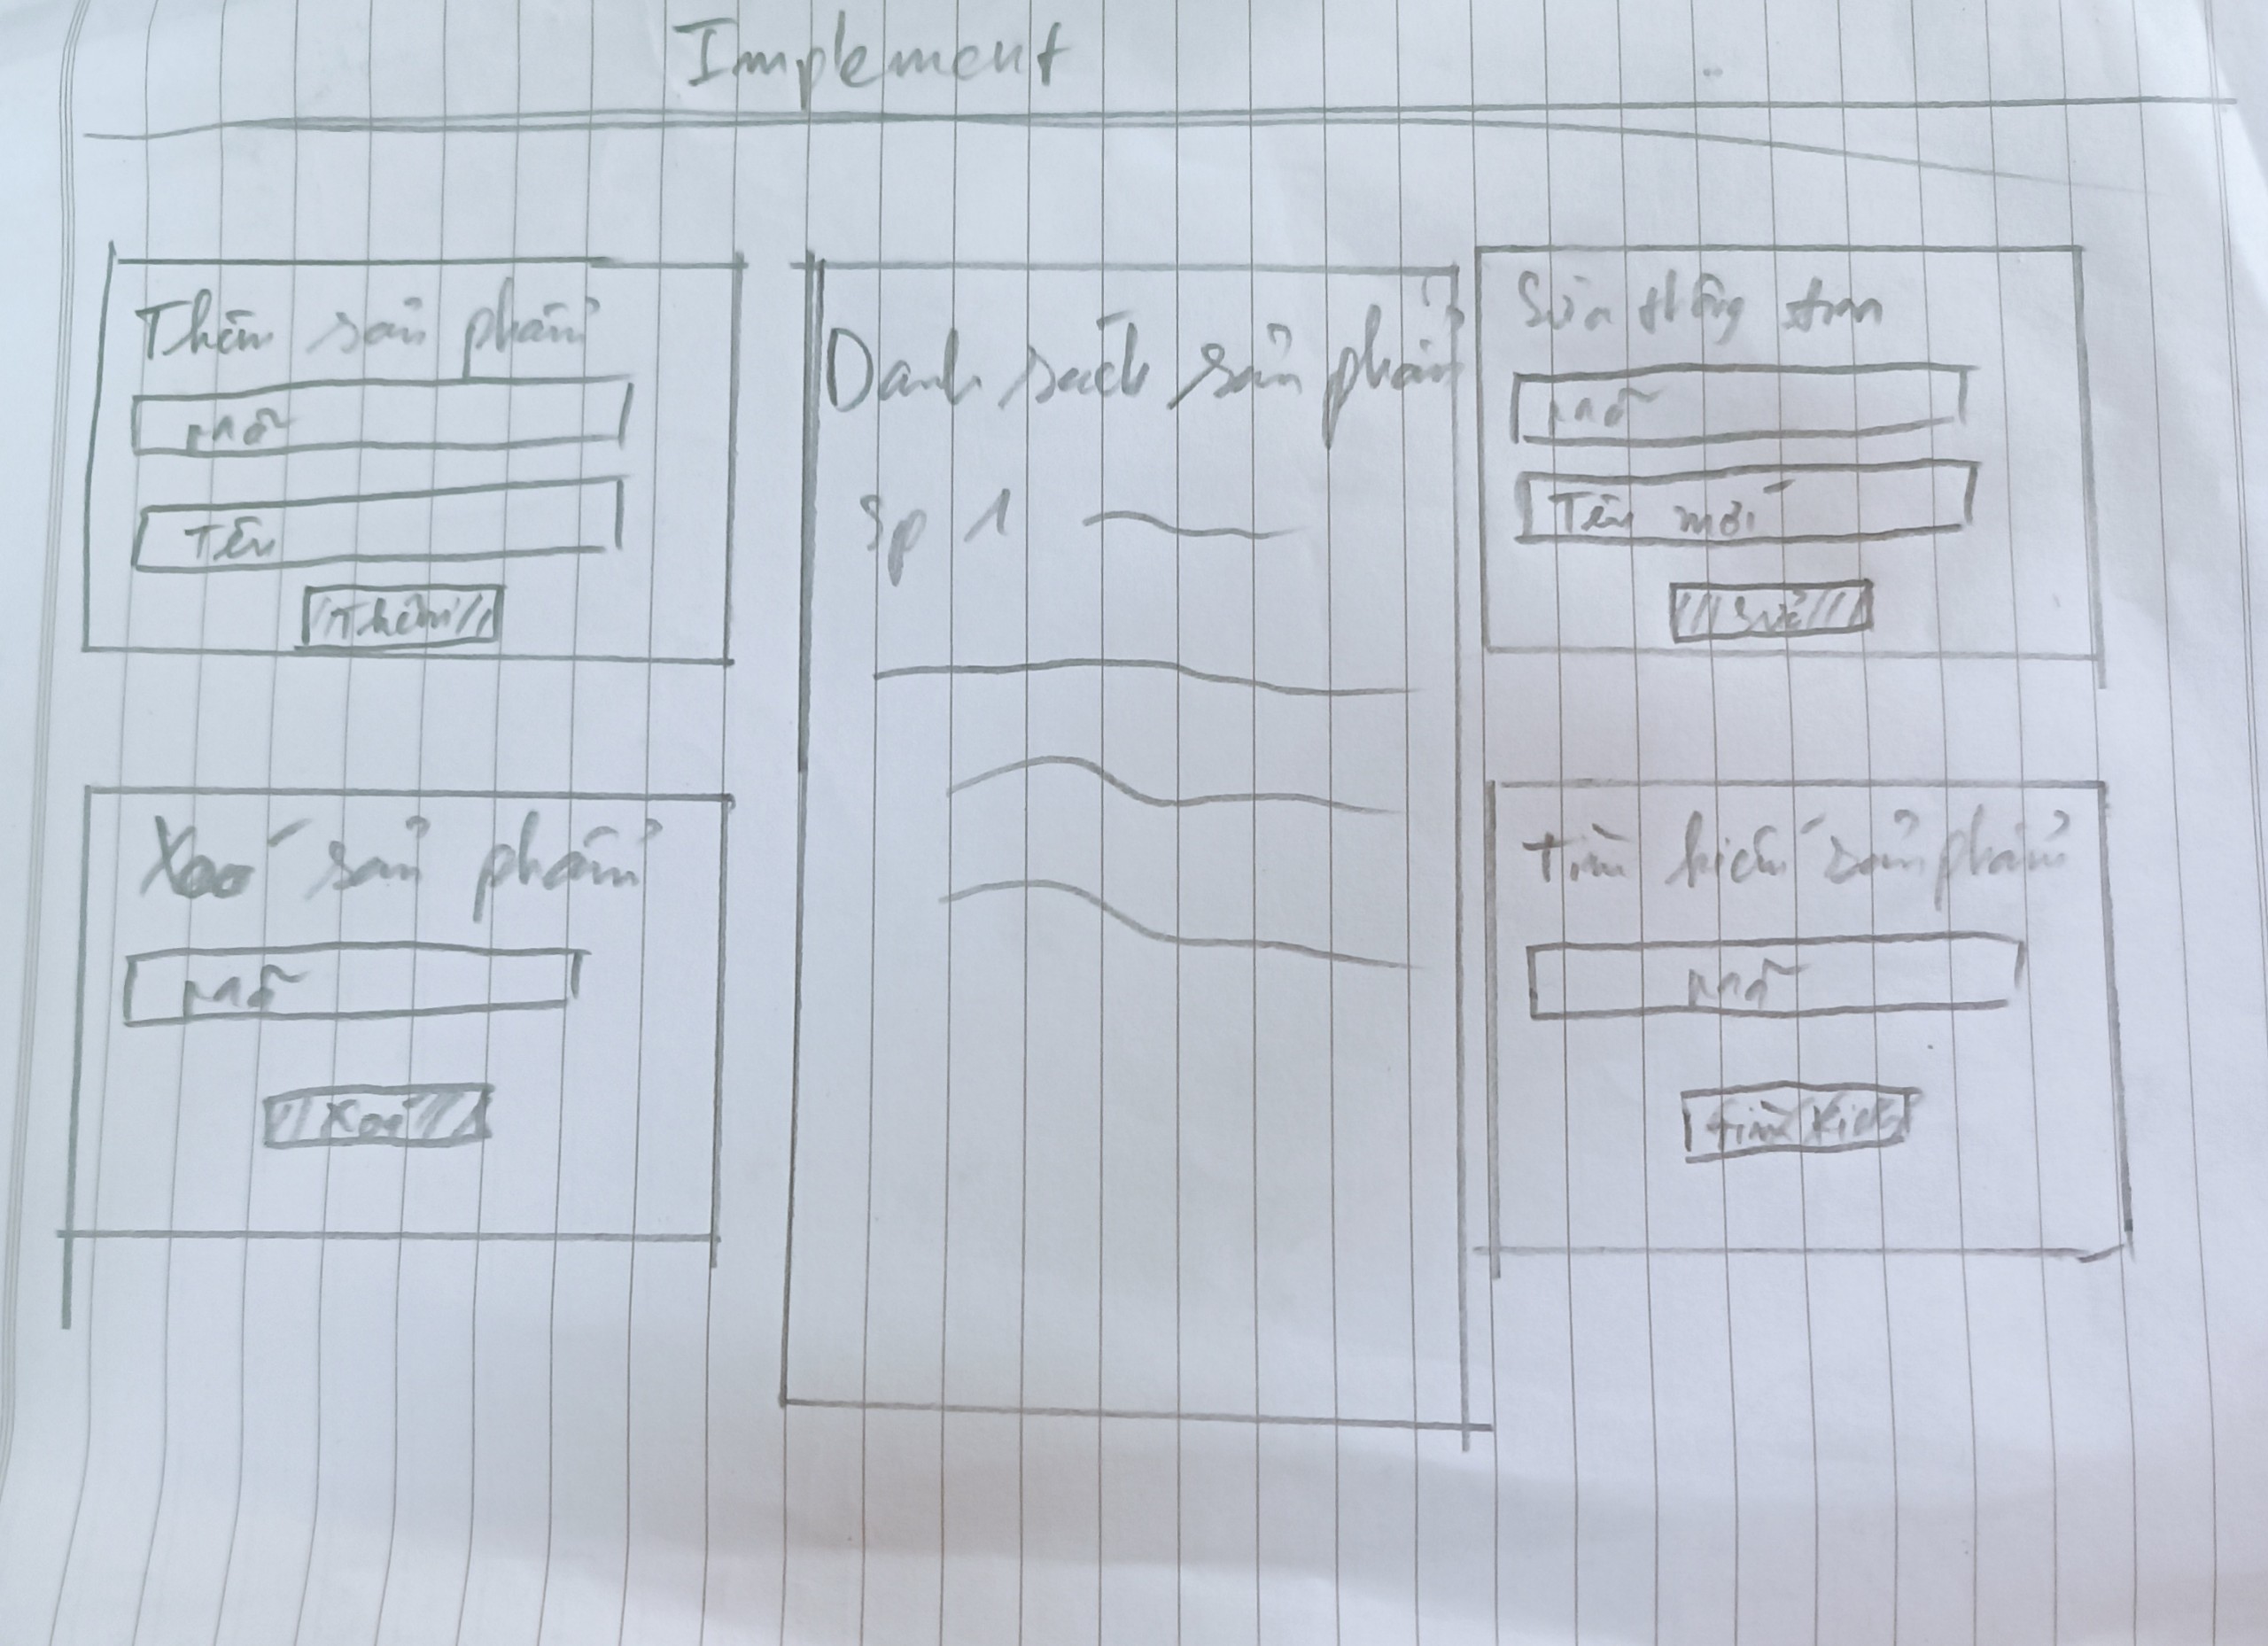 Implement
Thêm sản phẩm
mã
Tên
Thêm
Xoá sản phẩm
mã
Xoá
Danh sách sản phẩm
Sp 1
Sửa thông tin
mã
Tên mới
Sửa
Tìm kiếm sản phẩm
mã
Tìm kiếm